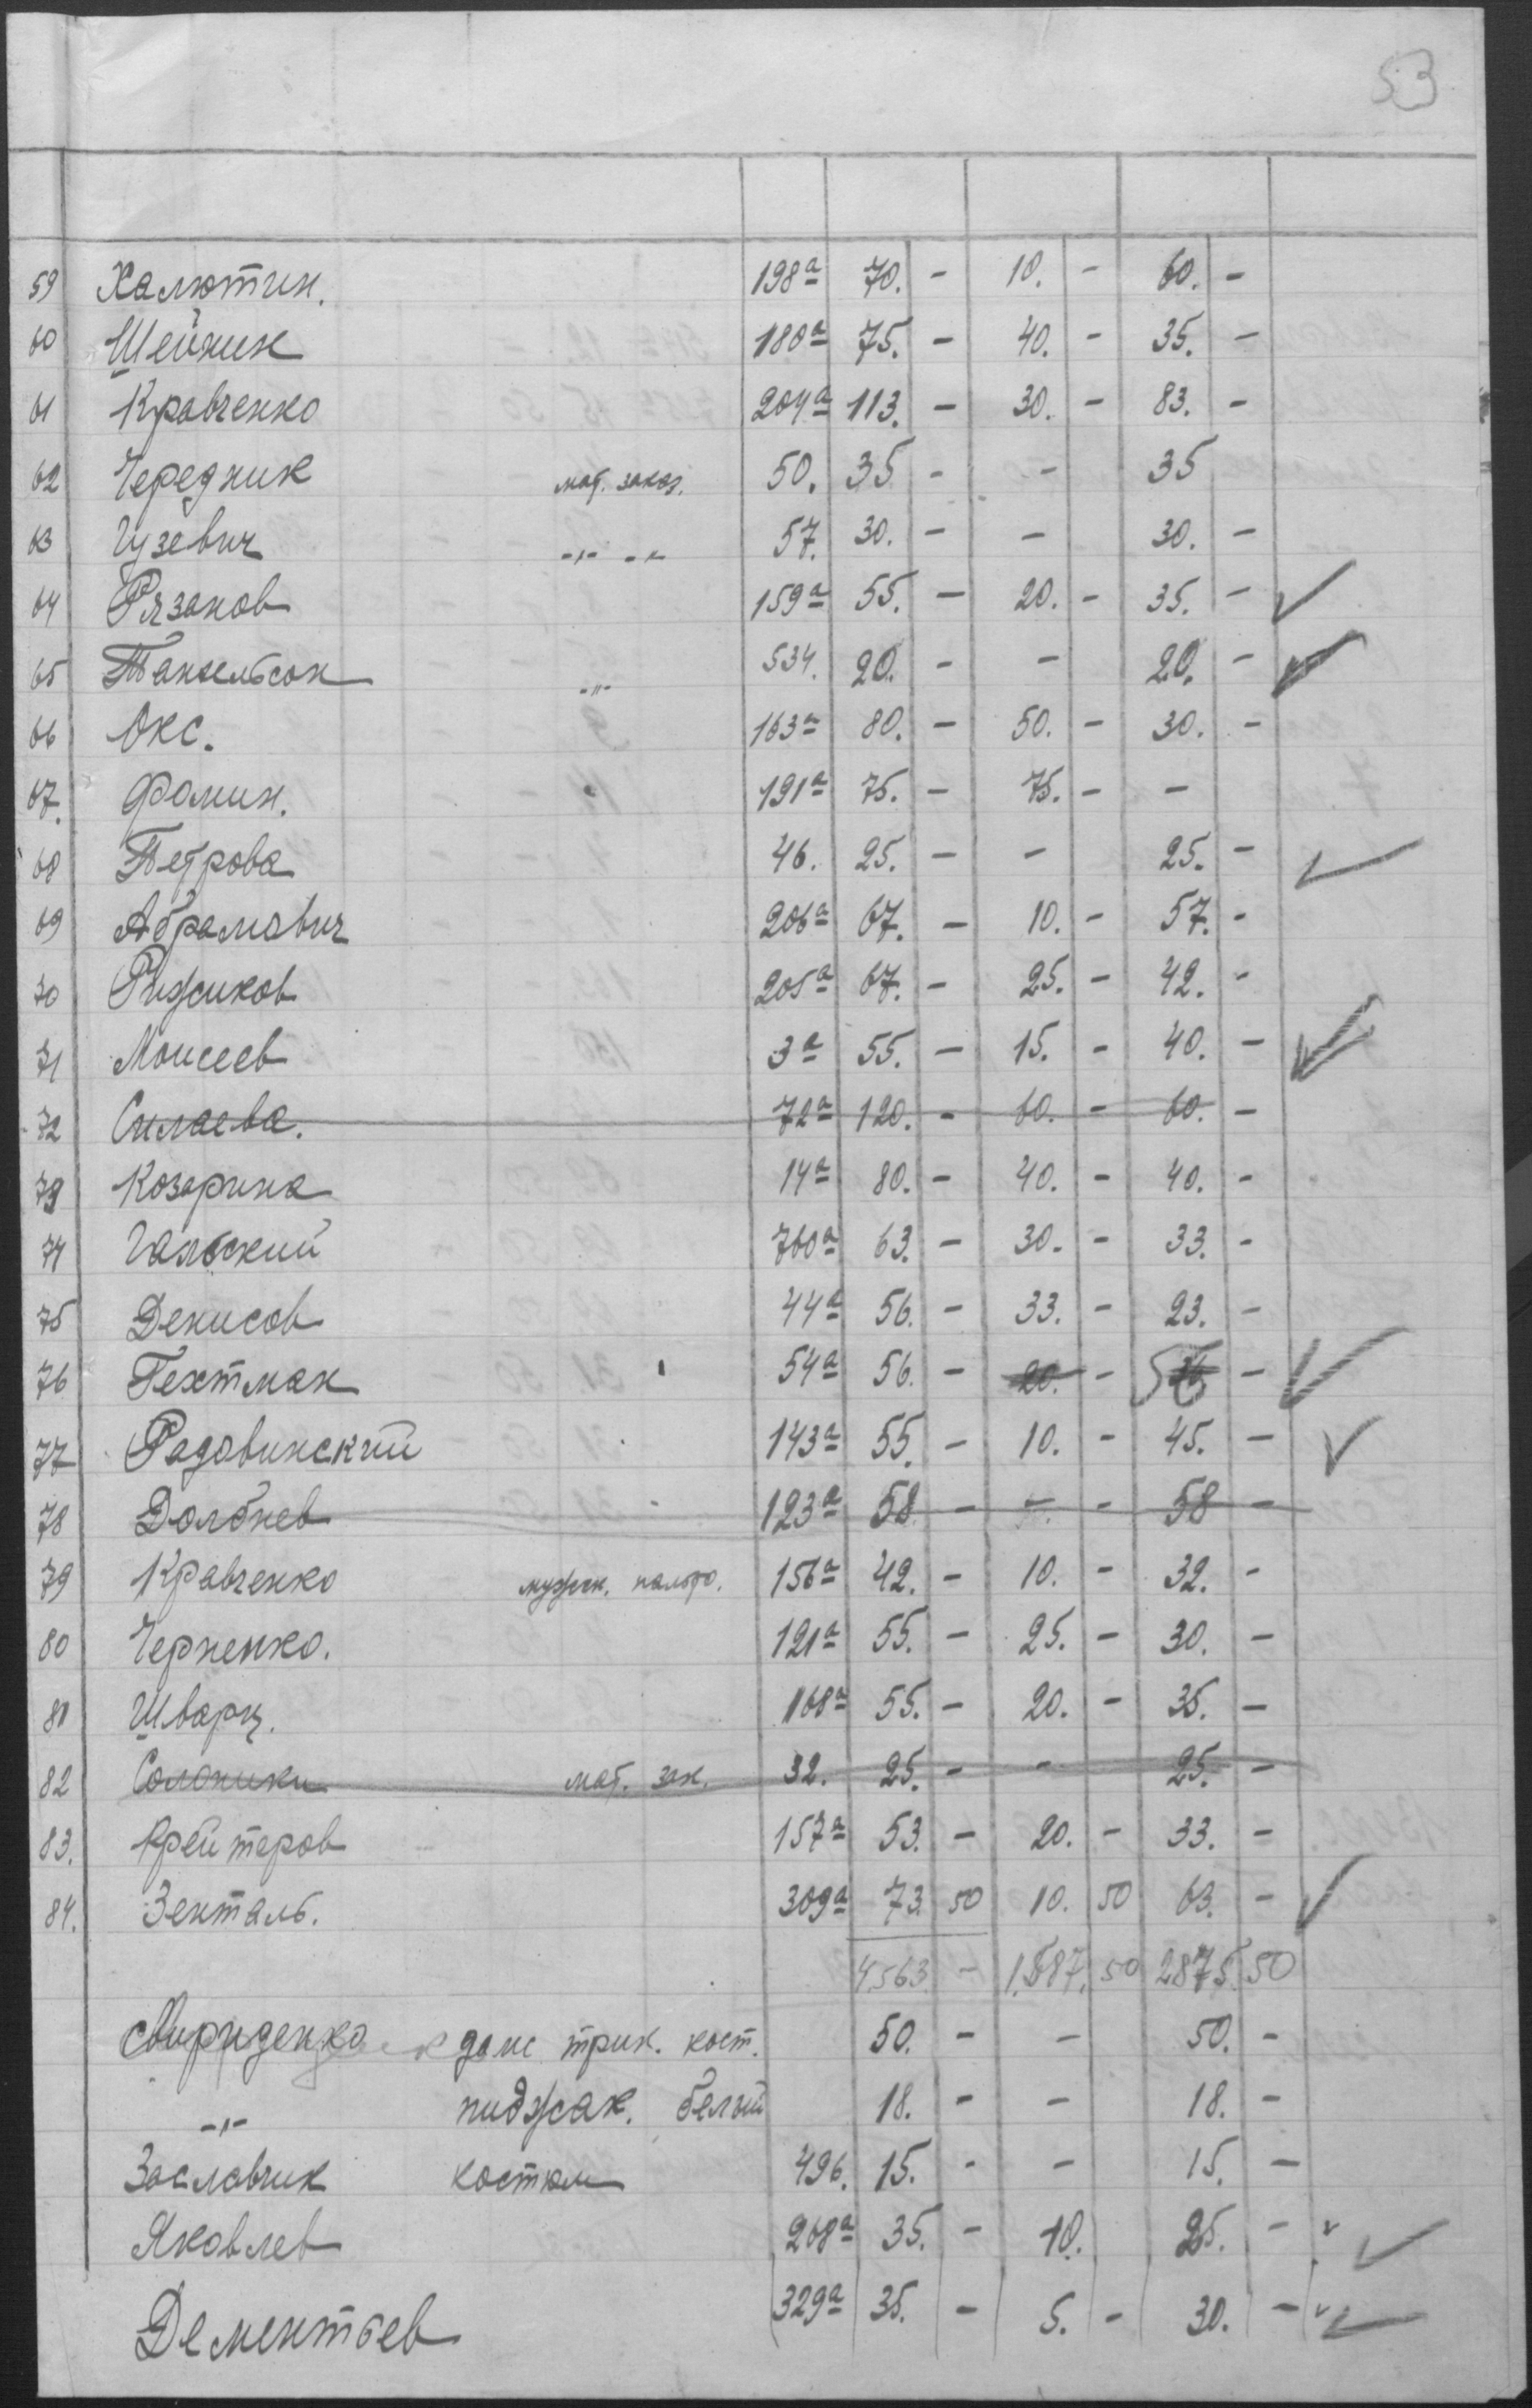 53
59 Халютин. 198а 70. - 10. - 60. -
60 Шейнин 180а 75. - 40. - 35. -
61 Кравченко 204а 113. - 30. - 83. -
62 Чередник мат. заказ. 50. 35 - - 35
63 Гузевич -"- -"- 57. 30. - - 30. -
64 Рязанов 159а 55. - 20. - 35. -
65 -"- 534. 20. - - 20. -
66 Окс. 163а 80. - 50. - 30. -
67. Фомин. 191а 75. - 75. - -
68 Петрова 46. 25. - - 25. -
69 Абрамович 206а 67. - 10. - 57. -
70 Рижиков 205а 67. - 25. - 42. -
71 Моисеев 3а 55. - 15. - 40. -
72 Силаева. 72а 120. - 60. - 60. -
73 Козарина 14а 80. - 40. - 40. -
74 Гальский 760а 63. - 30. - 33. -
75 Денисов 44а 56. - 33. - 23. -
76 Гехтман 54а 56. - 20. - 56 -
77 Радовинский 143а 55. - 10. - 45. -
78 Долбнев 123а 58 - - - 58 -
79 Кравченко мужск. пальто. 156а 42. - 10. - 32. -
80 Черненко. 121а 55. - 25. - 30. -
81 Шварц. 168а 55. - 20. - 35. -
82 Солоники мат. зак. 32. 25. - - 25. -
83. Крейтеров 157а 53. - 20. - 33. -
84. Зенталь. 309а 73. 50 10. 50 63. -
4563 - 1.587. 50 2875. 50
Свириденко трик. кост. 50. - - 50. -
-"- пиджак. белый 18. - - 18. -
Заславчик костюм 496. 15. - - 15. -
Яковлев 268а 35. - 10. 25. -
Дементьев 329а 35. - 5. - 30. -